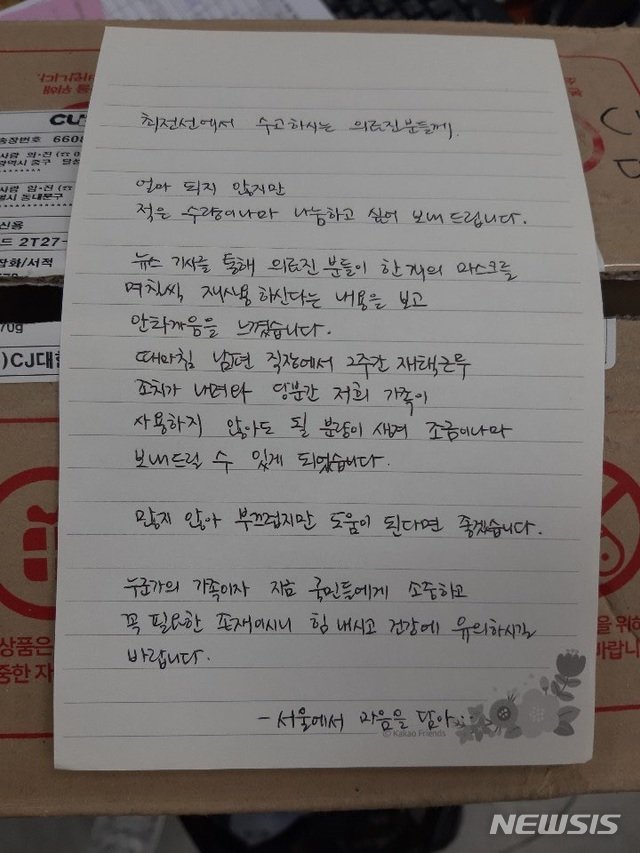 최전선에서 수고하시는 의료진분들께.
얼마 되지 않지만
적은 수량이나마 나눔하고 싶어 보내드립니다.
뉴스 기사를 통해 의료진 분들이 한개의 마스크를
며칠씩 재사용 하신다는 내용을 보고
안타까움을 느꼈습니다.
때마침 남편 직장에서 2주간 재택근무
조치가 내려와 당분간 저희 가족이
사용하지 않아도 될 분량이 생겨 조금이나마
보내드릴 수 있게 되었습니다.
많지 않아 부끄럽지만 도움이 된다면 좋겠습니다.
누군가의 가족이자 지금 국민들에게 소중하고
꼭 필요한 존재이시니 힘 내시고 건강에 유의하시길
바랍니다.
- 서울에서 마음을 담아..
© Kakao Friends
송장번호 6608
신용
드 2T27-
잡화/서적
70g
)CJ대한
상품은
중한 자
을 위해
바랍니
NEWSIS